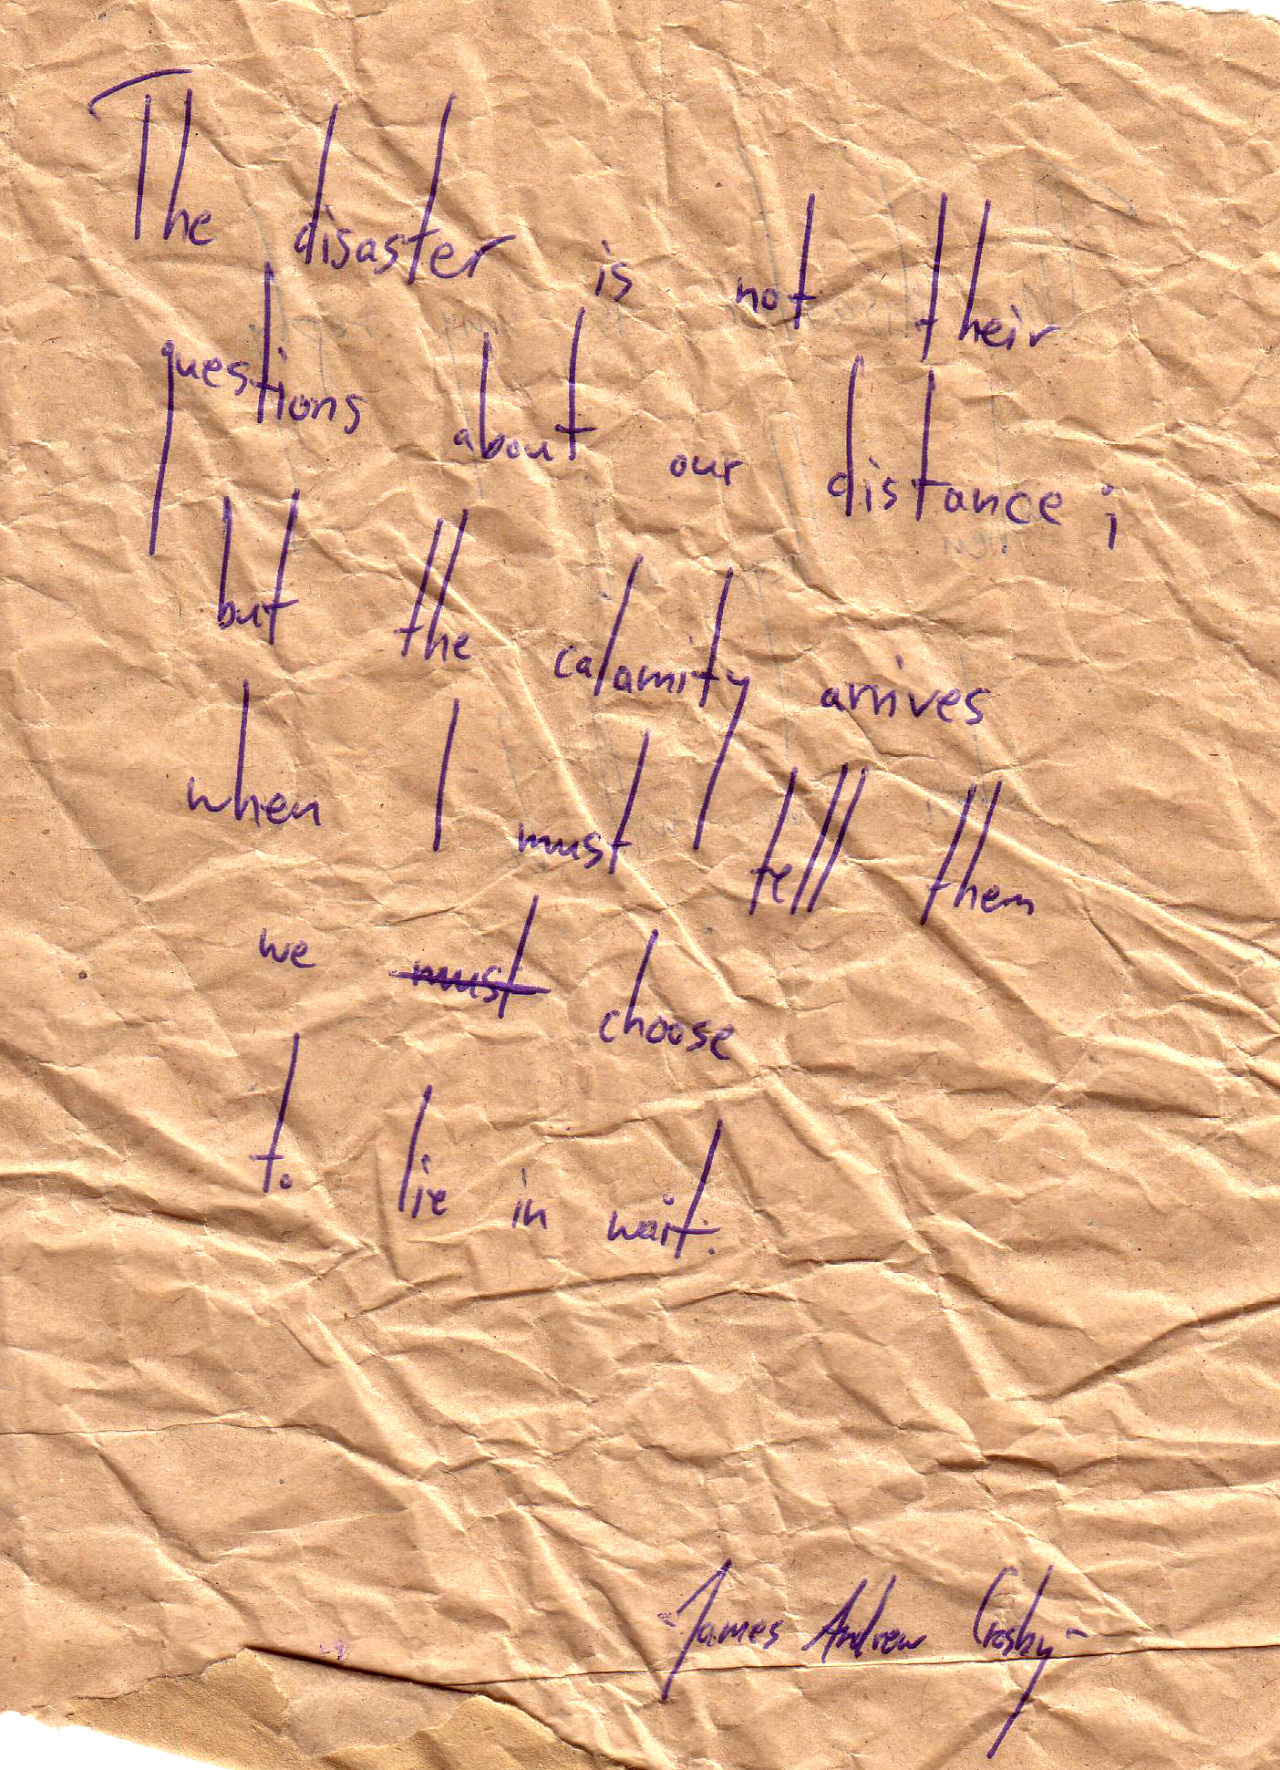 The disaster is not their
questions about our distance;
but the calamity arrives
when I must tell them
we must choose
to lie in wait.
-James Andrew Crosby-